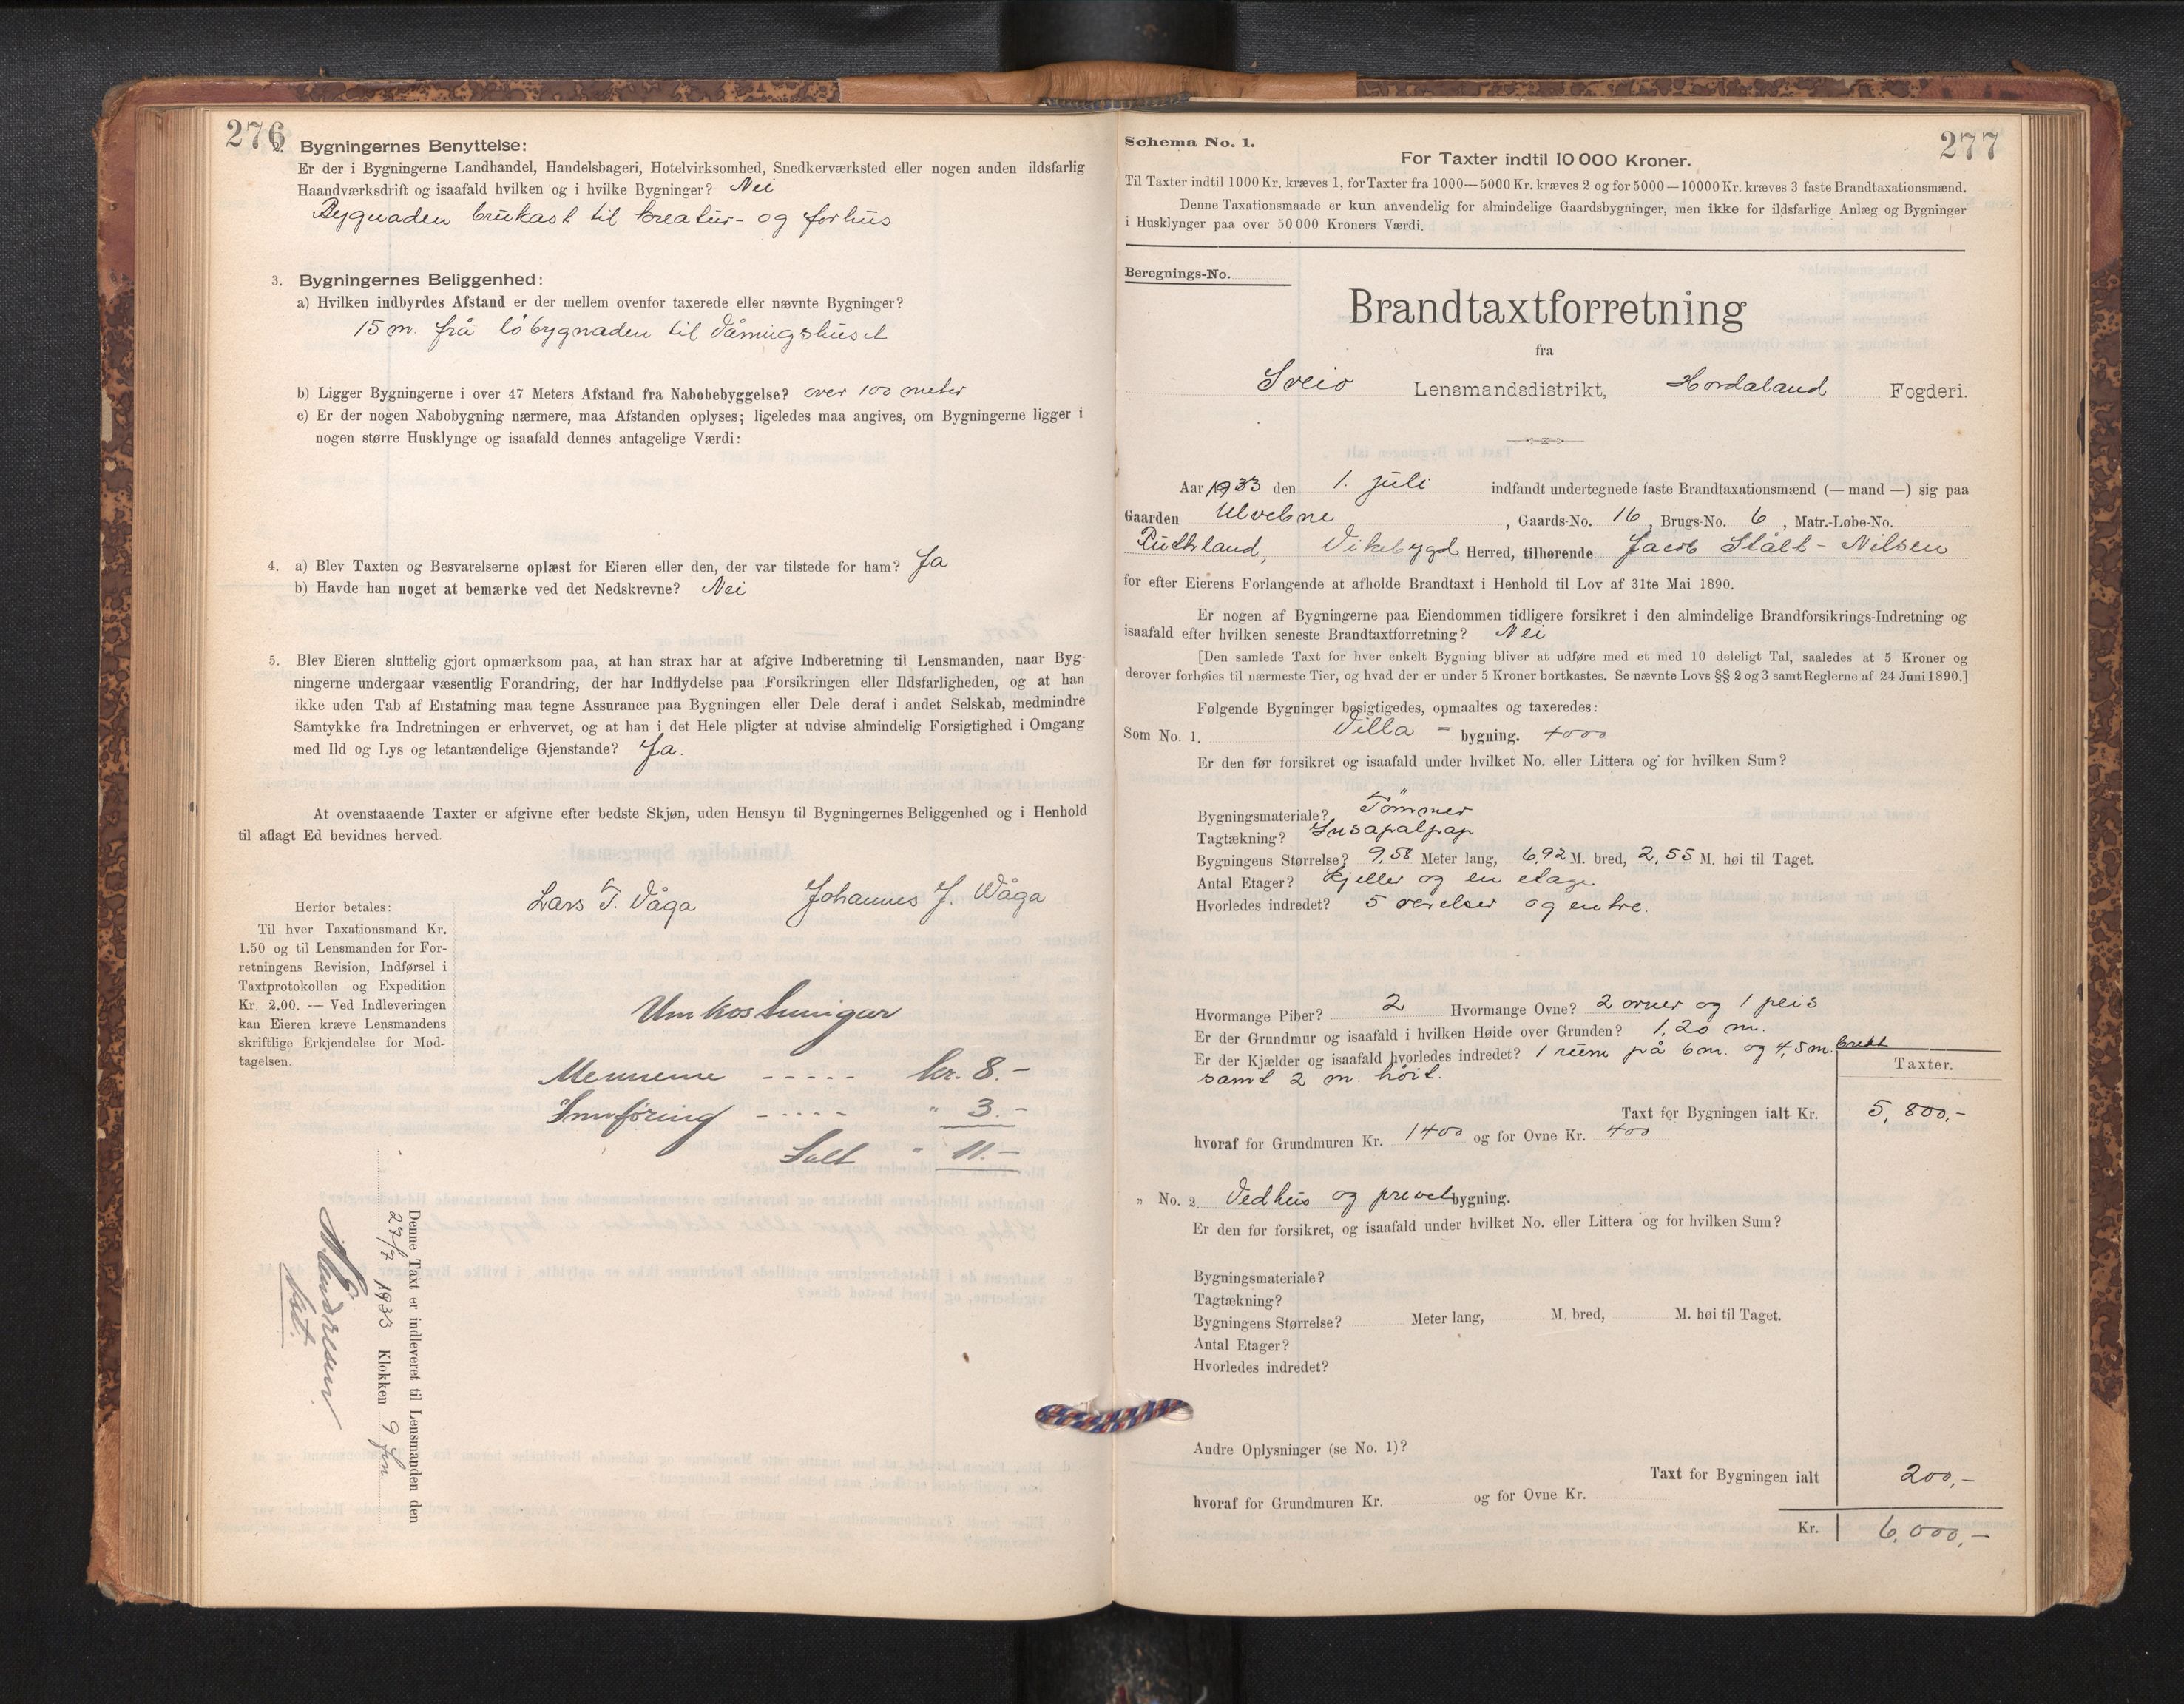 276
2. Bygningernes Benyttelse:
Er der i Bygningerne Landhandel, Handelsbageri, Hotelvirksomhed, Snedkerværksted eller nogen anden ildsfarlig
Haandværksdrift og isaafald hvilken og i hvilke Bygninger? Nei
Bygnaden brukast til kreatur- og forhus
3. Bygningernes Beliggenhed:
a) Hvilken indbyrdes Afstand er der mellem ovenfor taxerede eller nævnte Bygninger?
15 m. frå löbygnaden til våningshuset
b) Ligger Bygningerne i over 47 Meters Afstand fra Nabobebyggelse? over 100 meter
c) Er der nogen Nabobygning nærmere, maa Afstanden oplyses; ligeledes maa angives, om Bygningerne ligger i
nogen større Husklynge og isaafald dennes antagelige Værdi:
4. a) Blev Taxten og Besvarelserne oplæst for Eieren eller den, der var tilstede for ham? Ja
b) Havde han noget at bemærke ved det Nedskrevne? Nei
5. Blev Eieren sluttelig gjort opmærksom paa, at han strax har at afgive Indberetning til Lensmanden, naar Byg-
ningerne undergaar væsentlig Forandring, der har Indflydelse paa Forsikringen eller Ildsfarligheden, og at han
ikke uden Tab af Erstatning maa tegne Assurance paa Bygningen eller Dele deraf i andet Selskab, medmindre
Samtykke fra Indretningen er erhvervet, og at han i det Hele pligter at udvise almindelig Forsigtighed i Omgang
med Ild og Lys og letantændelige Gjenstande? Ja.
At ovenstaaende Taxter er afgivne efter bedste Skjøn, uden Hensyn til Bygningernes Beliggenhed og i Henhold
til aflagt Ed bevidnes herved.
Lars T. Våga Johannes J. Våga
Herfor betales:
Til hver Taxationsmand Kr.
1.50 og til Lensmanden for For-
retningens Revision, Indførsel i
Taxtprotokollen og Expedition
Kr. 2.00. — Ved Indleveringen
kan Eieren kræve Lensmandens
skriftlige Erkjendelse for Mod-
tagelsen.
Umkostningar
Mennene ----- kr. 8.-
Innføring ----- " 3.-
Ialt " 11.-
Denne Taxt er indleveret til Lensmanden den
27/7 1933 Klokken 9 fm.
277
Schema No. 1.
For Taxter indtil 10 000 Kroner.
Til Taxter indtil 1000 Kr. kræves 1, for Taxter fra 1000—5000 Kr. kræves 2 og for 5000—10000 Kr. kræves 3 faste Brandtaxationsmænd.
Denne Taxationsmaade er kun anvendelig for almindelige Gaardsbygninger, men ikke for ildsfarlige Anlæg og Bygninger
i Husklynger paa over 50 000 Kroners Værdi.
Beregnings-No.
Brandtaxtforretning
fra
Sveio Lensmandsdistrikt, Hordaland Fogderi.
Aar 1933 den 1. juli indfandt undertegnede faste Brandtaxationsmænd (— mand —) sig paa
Gaarden Ulvebne, Gaards-No. 16, Brugs-No. 6, Matr.-Løbe-No.
Vikebygd Herred, tilhørende Jacob Stålt-Nilsen
for efter Eierens Forlangende at afholde Brandtaxt i Henhold til Lov af 31te Mai 1890.
Er nogen af Bygningerne paa Eiendommen tidligere forsikret i den almindelige Brandforsikrings-Indretning og
isaafald efter hvilken seneste Brandtaxtforretning? Nei
[Den samlede Taxt for hver enkelt Bygning bliver at udføre med et med 10 deleligt Tal, saaledes at 5 Kroner og
derover forhøies til nærmeste Tier, og hvad der er under 5 Kroner bortkastes. Se nævnte Lovs §§ 2 og 3 samt Reglerne af 24 Juni 1890.]
Følgende Bygninger besigtigedes, opmaaltes og taxeredes:
Som No. 1. Villa - bygning. 4000
Er den før forsikret og isaafald under hvilket No. eller Littera og for hvilken Sum?
Bygningsmateriale? Tömmer
Tagtækning?
Bygningens Størrelse? 9,58 Meter lang, 6,92 M. bred, 2,55 M. høi til Taget.
Antal Etager? kjeller og en etage
Hvorledes indredet? 5 verelser og entre.
Hvormange Piber? 2 Hvormange Ovne? 2 ovner og 1 peis
Er der Grundmur og isaafald i hvilken Høide over Grunden? 1,20 m.
Er der Kjælder og isaafald hvorledes indredet? 1 rum på 6 m. og 4,5 m. bredt
samt 2 m. höit.
Taxter.
Taxt for Bygningen ialt Kr. 5,800,-
hvoraf for Grundmuren Kr. 1400 og for Ovne Kr. 400
" No. 2 Vedhus og prevet bygning.
Er den før forsikret, og isaafald under hvilket No. eller Littera og for hvilken Sum?
Bygningsmateriale?
Tagtækning?
Bygningens Størrelse? Meter lang, M. bred, M. høi til Taget.
Antal Etager?
Hvorledes indredet?
Andre Oplysninger (se No. 1)?
Taxt for Bygningen ialt 200,-
hvoraf for Grundmuren Kr. og for Ovne Kr.
Kr. 6,000,-